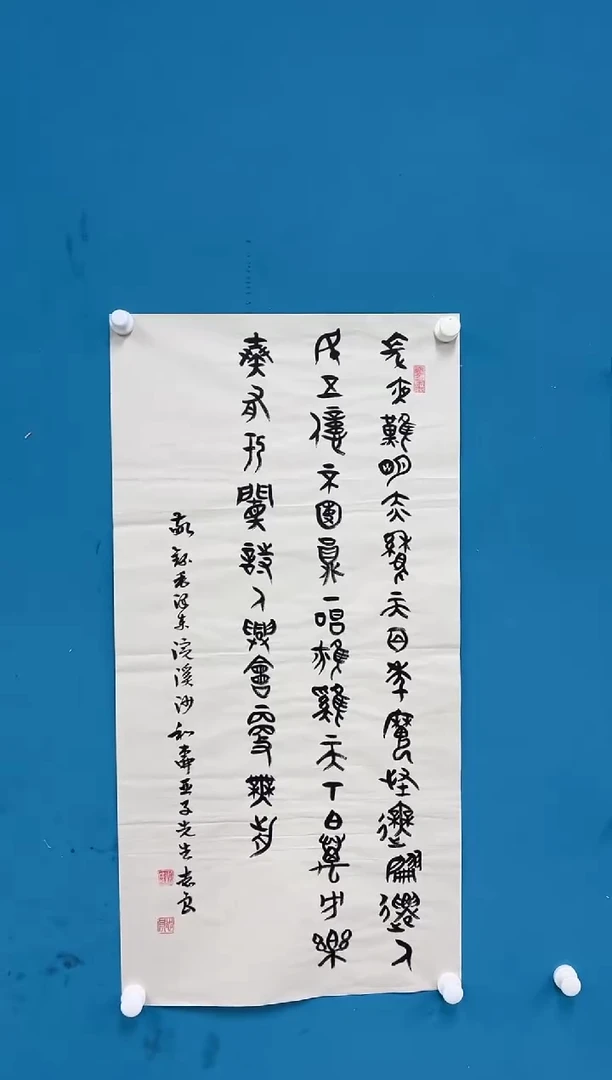 長夜難明赤縣天百年魔怪舞翩躚人
民五億不團圓一唱雄雞天下白萬方樂
奏有于闐詩人興會更無前
敬錄毛澤東浣溪沙和柳亞子先生志良